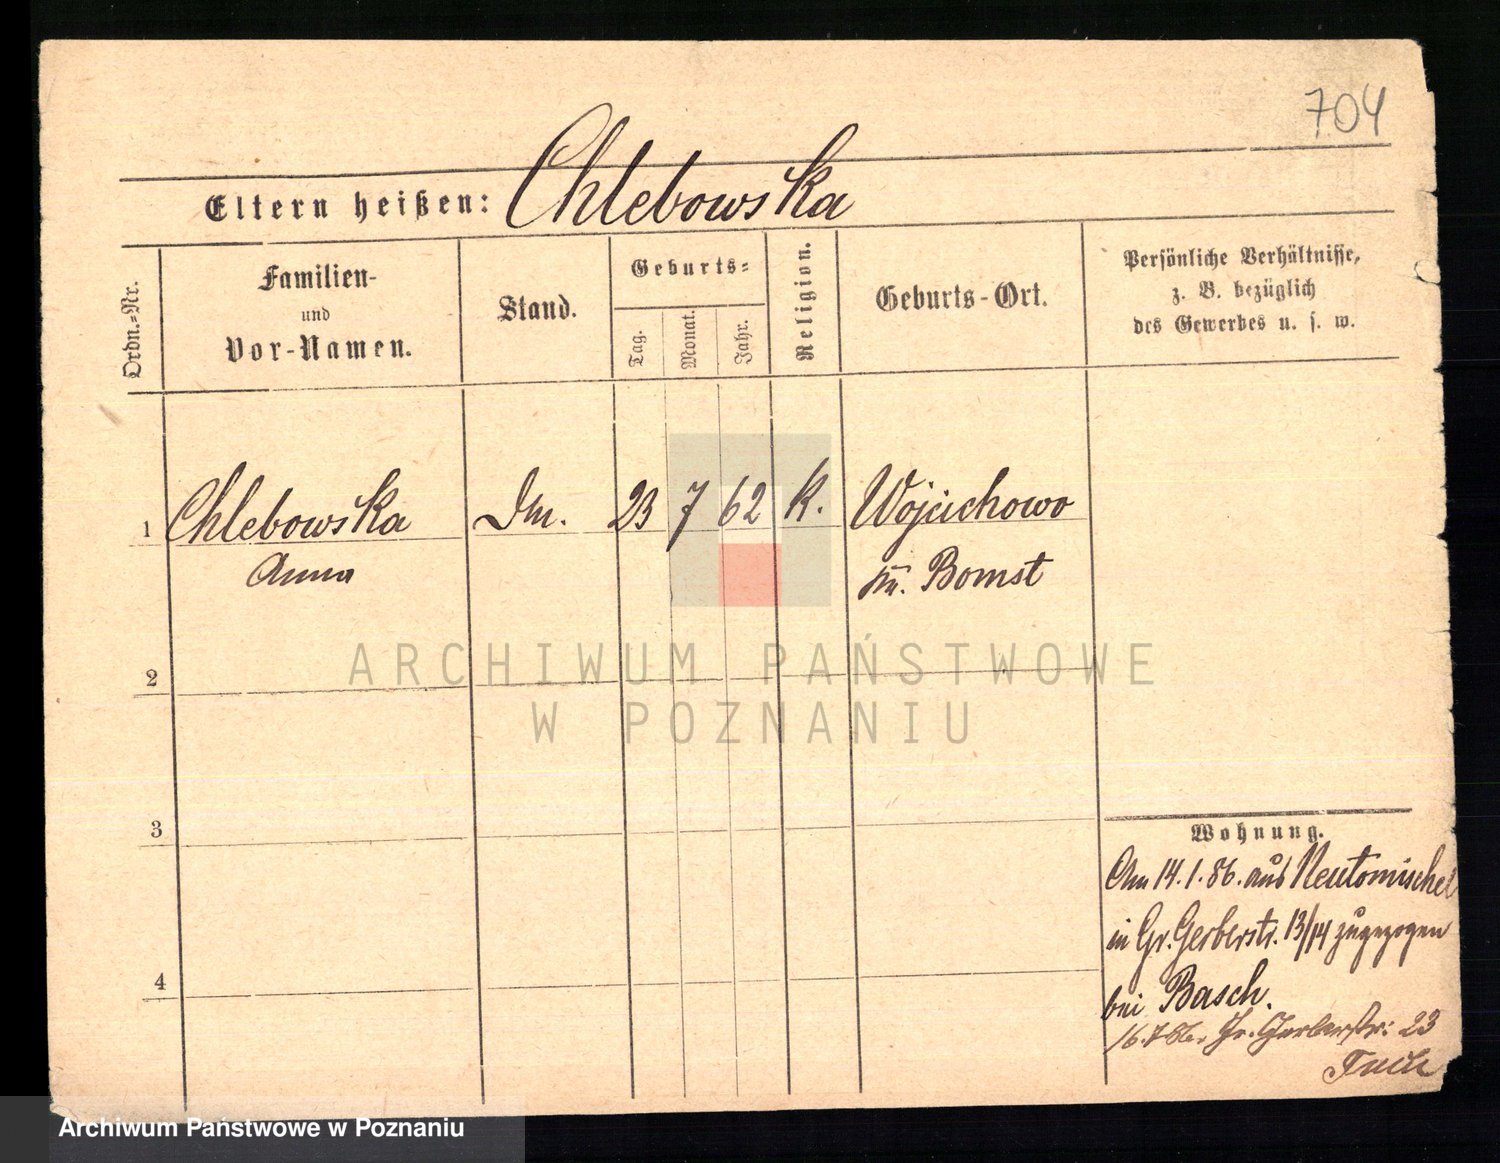 704
Eltern heißen: Chlebowska
Ordn.-Nr.
Familien-
und
Vor-Namen.
Stand.
Geburts-
Tag.
Monat.
Jahr.
Religion.
Geburts-Ort.
Persönliche Verhältnisse,
z. B. bezüglich
des Gewerbes u. s. w.
1 Chlebowska 23 7 62 K. Wojciechowo
Anna Bomst
2
3
4
Wohnung.
Am 14.1.86. aus Neutomischel
in Gr. Gerberstr. 13/14 zugezogen
bei Basch.
16.7.86. Gr. Gerberstr: 23
ARCHIWUM PAŃSTWOWE
W POZNANIU
Archiwum Państwowe w Poznaniu